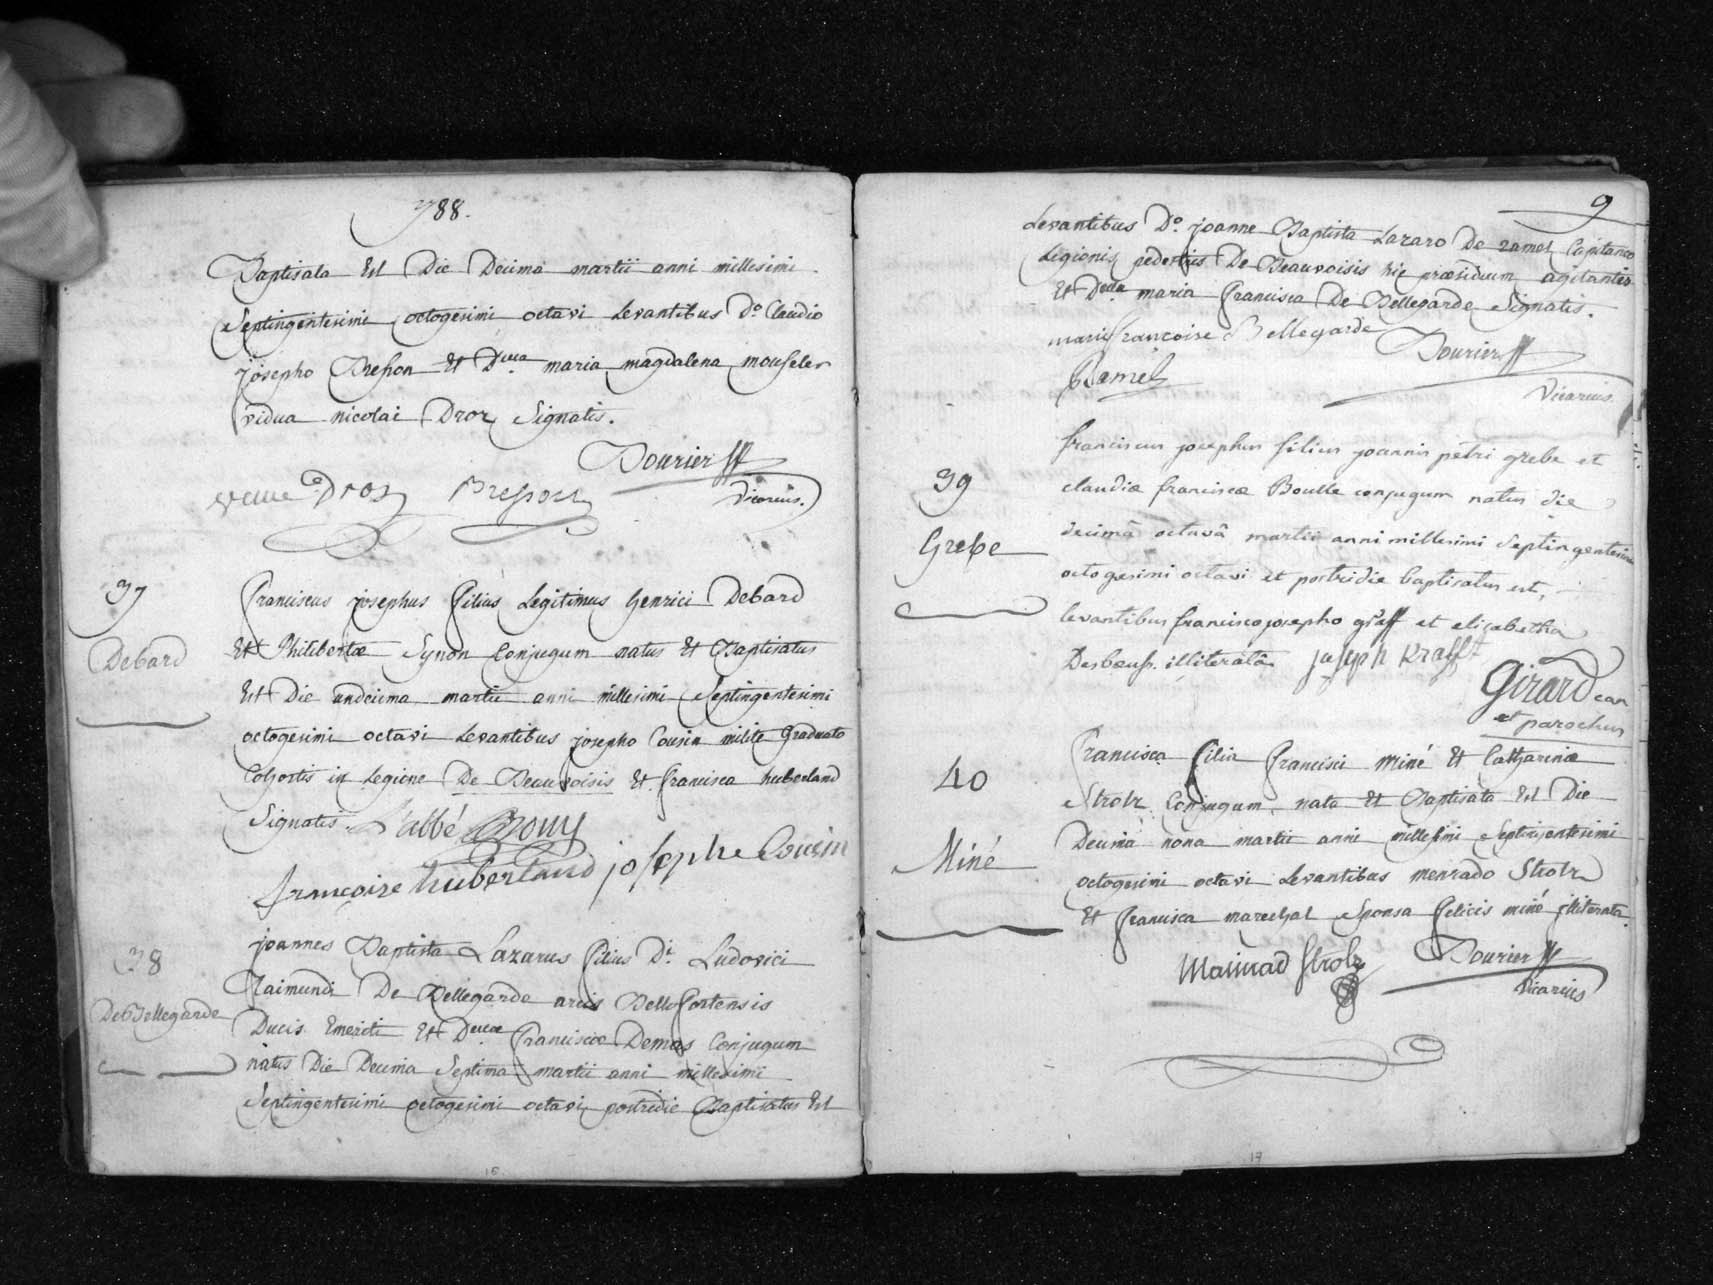 788.
Baptisata Est Die Decima martii anni millesimi
Septingentesimi octogesimi octavi Levantibus D.o Claudio
josepho Bresson Et D.cella maria magdalena mouseler
vidua nicolai Droz Signatis.
Dourier
Vicarius.
veuve Droz Bresson
37
Debard
franciscus josephus filius Legitimus henrici Debard
Et Philibertæ Synon Conjugum natus Et Baptisatus
Est Die undecima martii anni millesimi Septingentesimi
octogesimi octavi Levantibus josepho Cousin milite Graduato
Cohortis in Legione De Beauvoisis Et francisca huberland
Signatis. L'abbé Bouy
françoise huberland josephe Cousin
38
De Bellegarde
joannes Baptista Lazarus filius D.i Ludovici
Raimundi De Bellegarde arcis Bellofortensis
Ducis Emeriti Et D.cellæ franciscæ Demas Conjugum
natus Die Decima Septima martii anni millesimi
Septingentesimi octogesimi octavi postridie Baptisatus Est
15
9
Levantibus D.o joanne Baptista Lazaro De ramel Capitaneo
Legionis pedestris De Beauvoisis hic præsidium agitantis
Et D.cella maria francisca De Bellegarde Signatis.
marie françoise Bellegarde
Dourier
Ramel
Vicarius.
39
Grebe
franciscus josephus filius joannis petri grebe et
claudiæ franciscæ Boulle conjugum natus die
decimâ octavâ martii anni millesimi Septingentesimi
octogesimi octavi et postridie baptisatus est,
levantibus francisco josepho graff et elizabetha
Desboeufs. illiteratâ. Joseph Krafft
Girard can
et parochus
40
Miné
francisca filia francisci miné Et Catharinæ
Strolz Conjugum nata Et Baptisata Est Die
Decima nona martii anni millesimi Septingentesimi
octogesimi octavi Levantibus menrado Strolz
Et francisca marechal Sponsa felicis miné illiterata.
Mainrad Strolz
Dourier
Vicarius
17